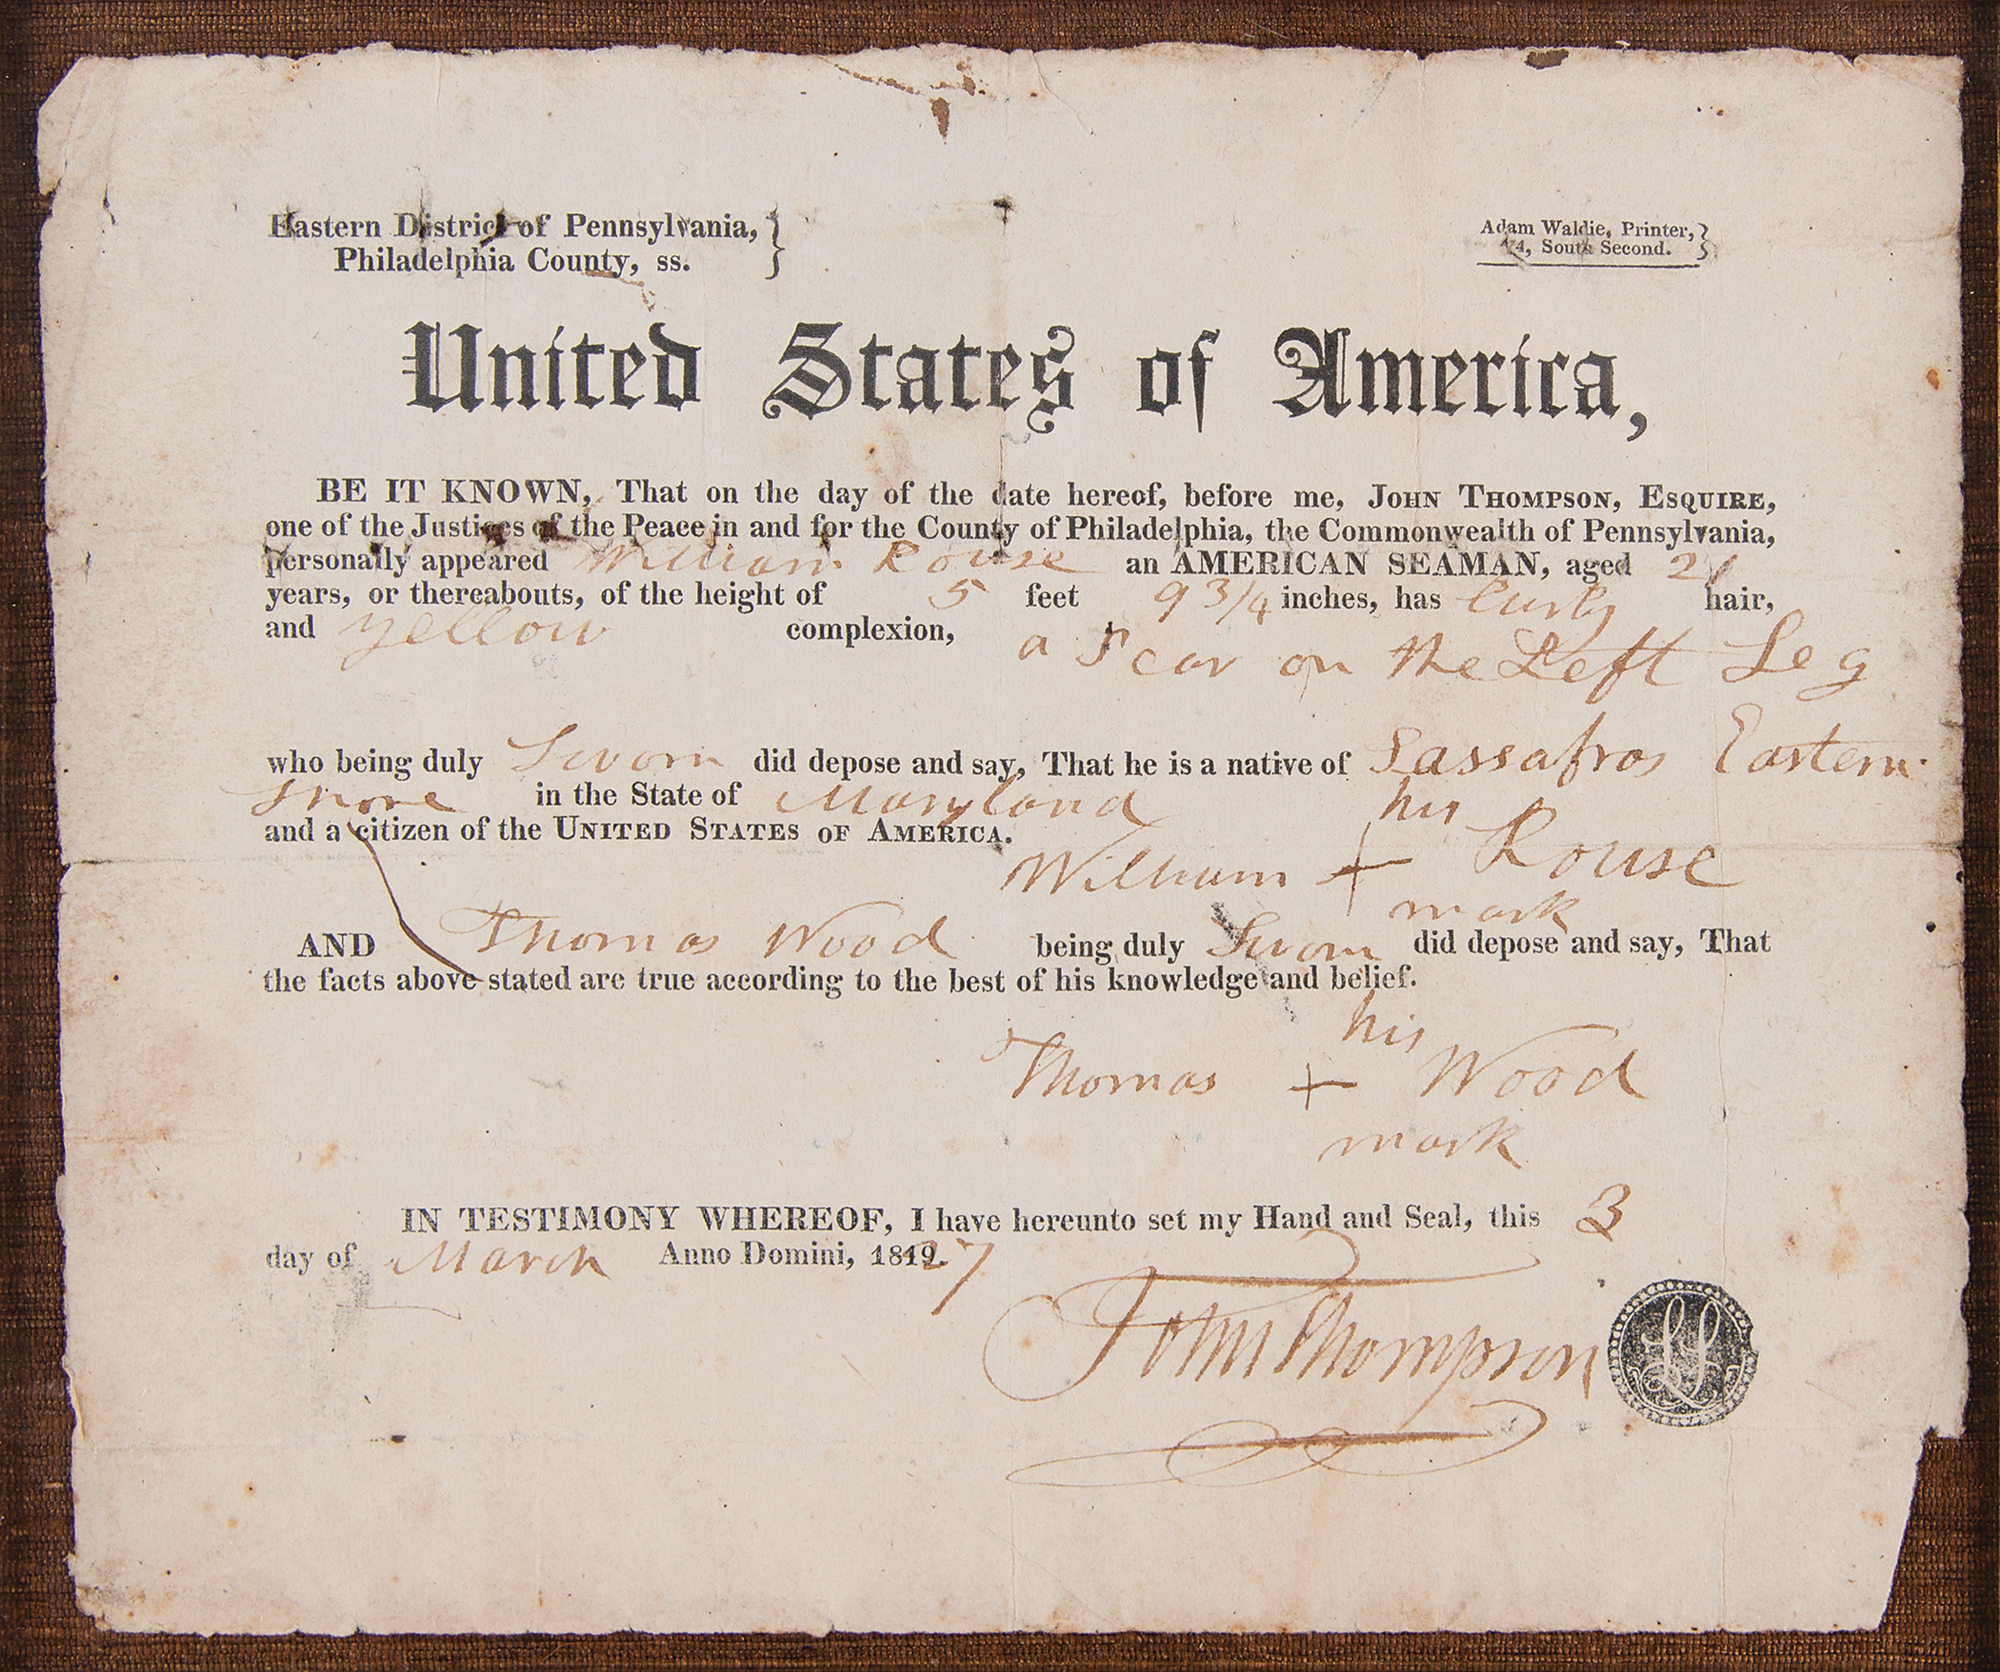 Eastern District of Pennsylvania,
Philadelphia County, ss.
Adam Waldie, Printer,
South Second.
United States of America,
BE IT KNOWN, That on the day of the date hereof, before me, JOHN THOMPSON, ESQUIRE,
one of the Justices of the Peace in and for the County of Philadelphia, the Commonwealth of Pennsylvania,
personally appeared William Rouse an AMERICAN SEAMAN, aged 21
years, or thereabouts, of the height of 5 feet 9 3/4 inches, has Curly hair,
and yellow complexion, a Scar on the Left Leg
who being duly Sworn did depose and say, That he is a native of Sassafras Eastern
Shore in the State of Maryland
and a citizen of the UNITED STATES OF AMERICA.
his
William + Rouse
mark
AND Thomas Wood being duly Sworn did depose and say, That
the facts above stated are true according to the best of his knowledge and belief.
his
Thomas + Wood
mark
IN TESTIMONY WHEREOF, I have hereunto set my Hand and Seal, this 3
day of March Anno Domini, 1827
John Thompson
LS